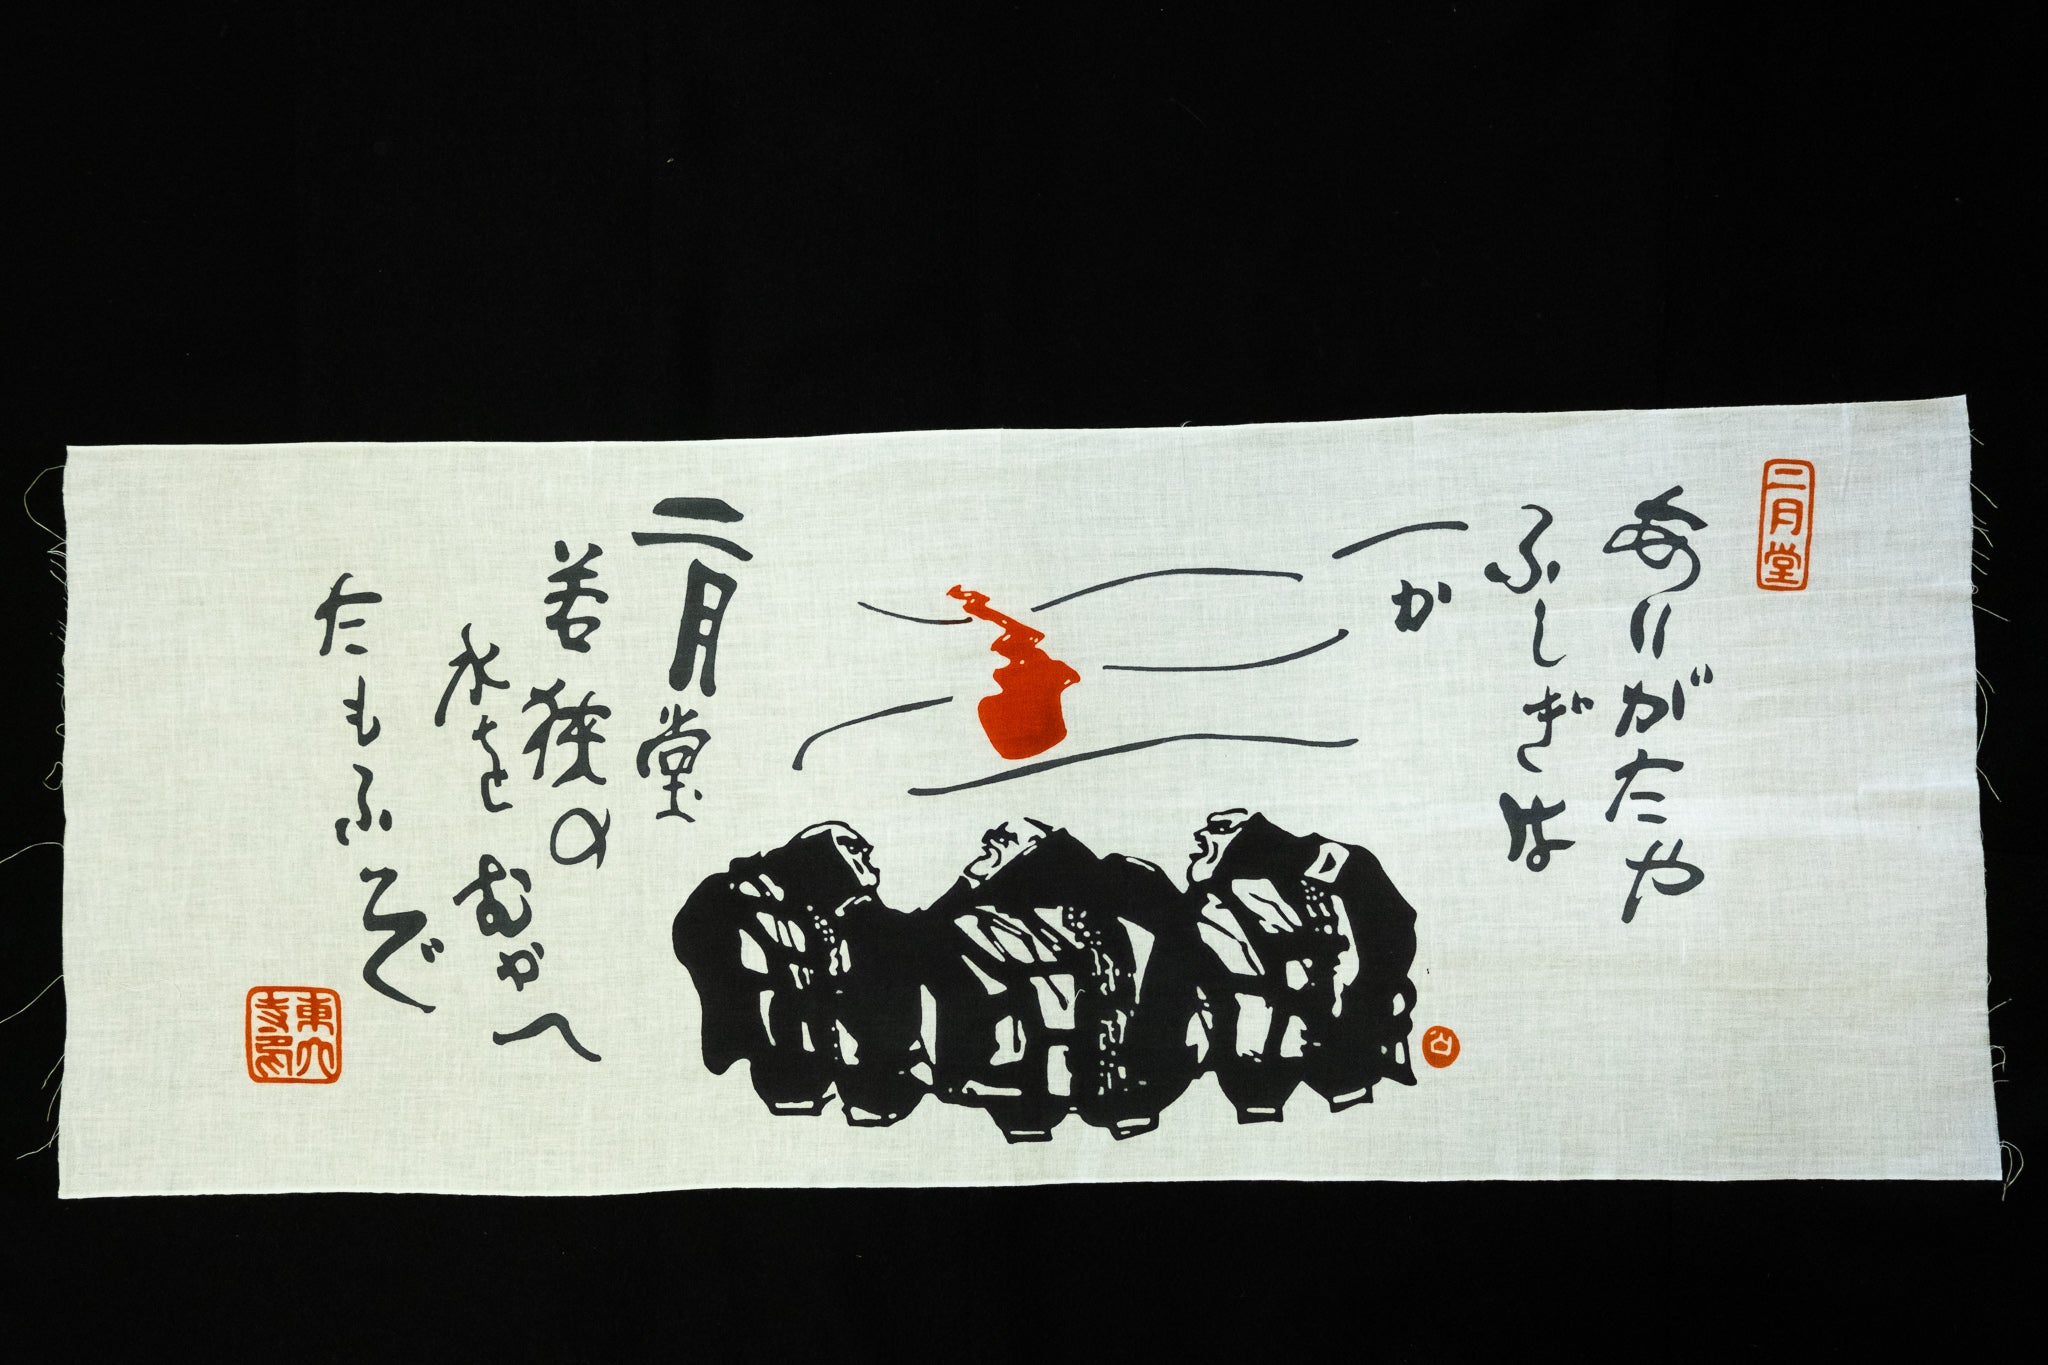 二月堂
ありがたや
ふしぎは
一か
二月堂
若狭の
水をむかへ
たもふぞ
東大寺印